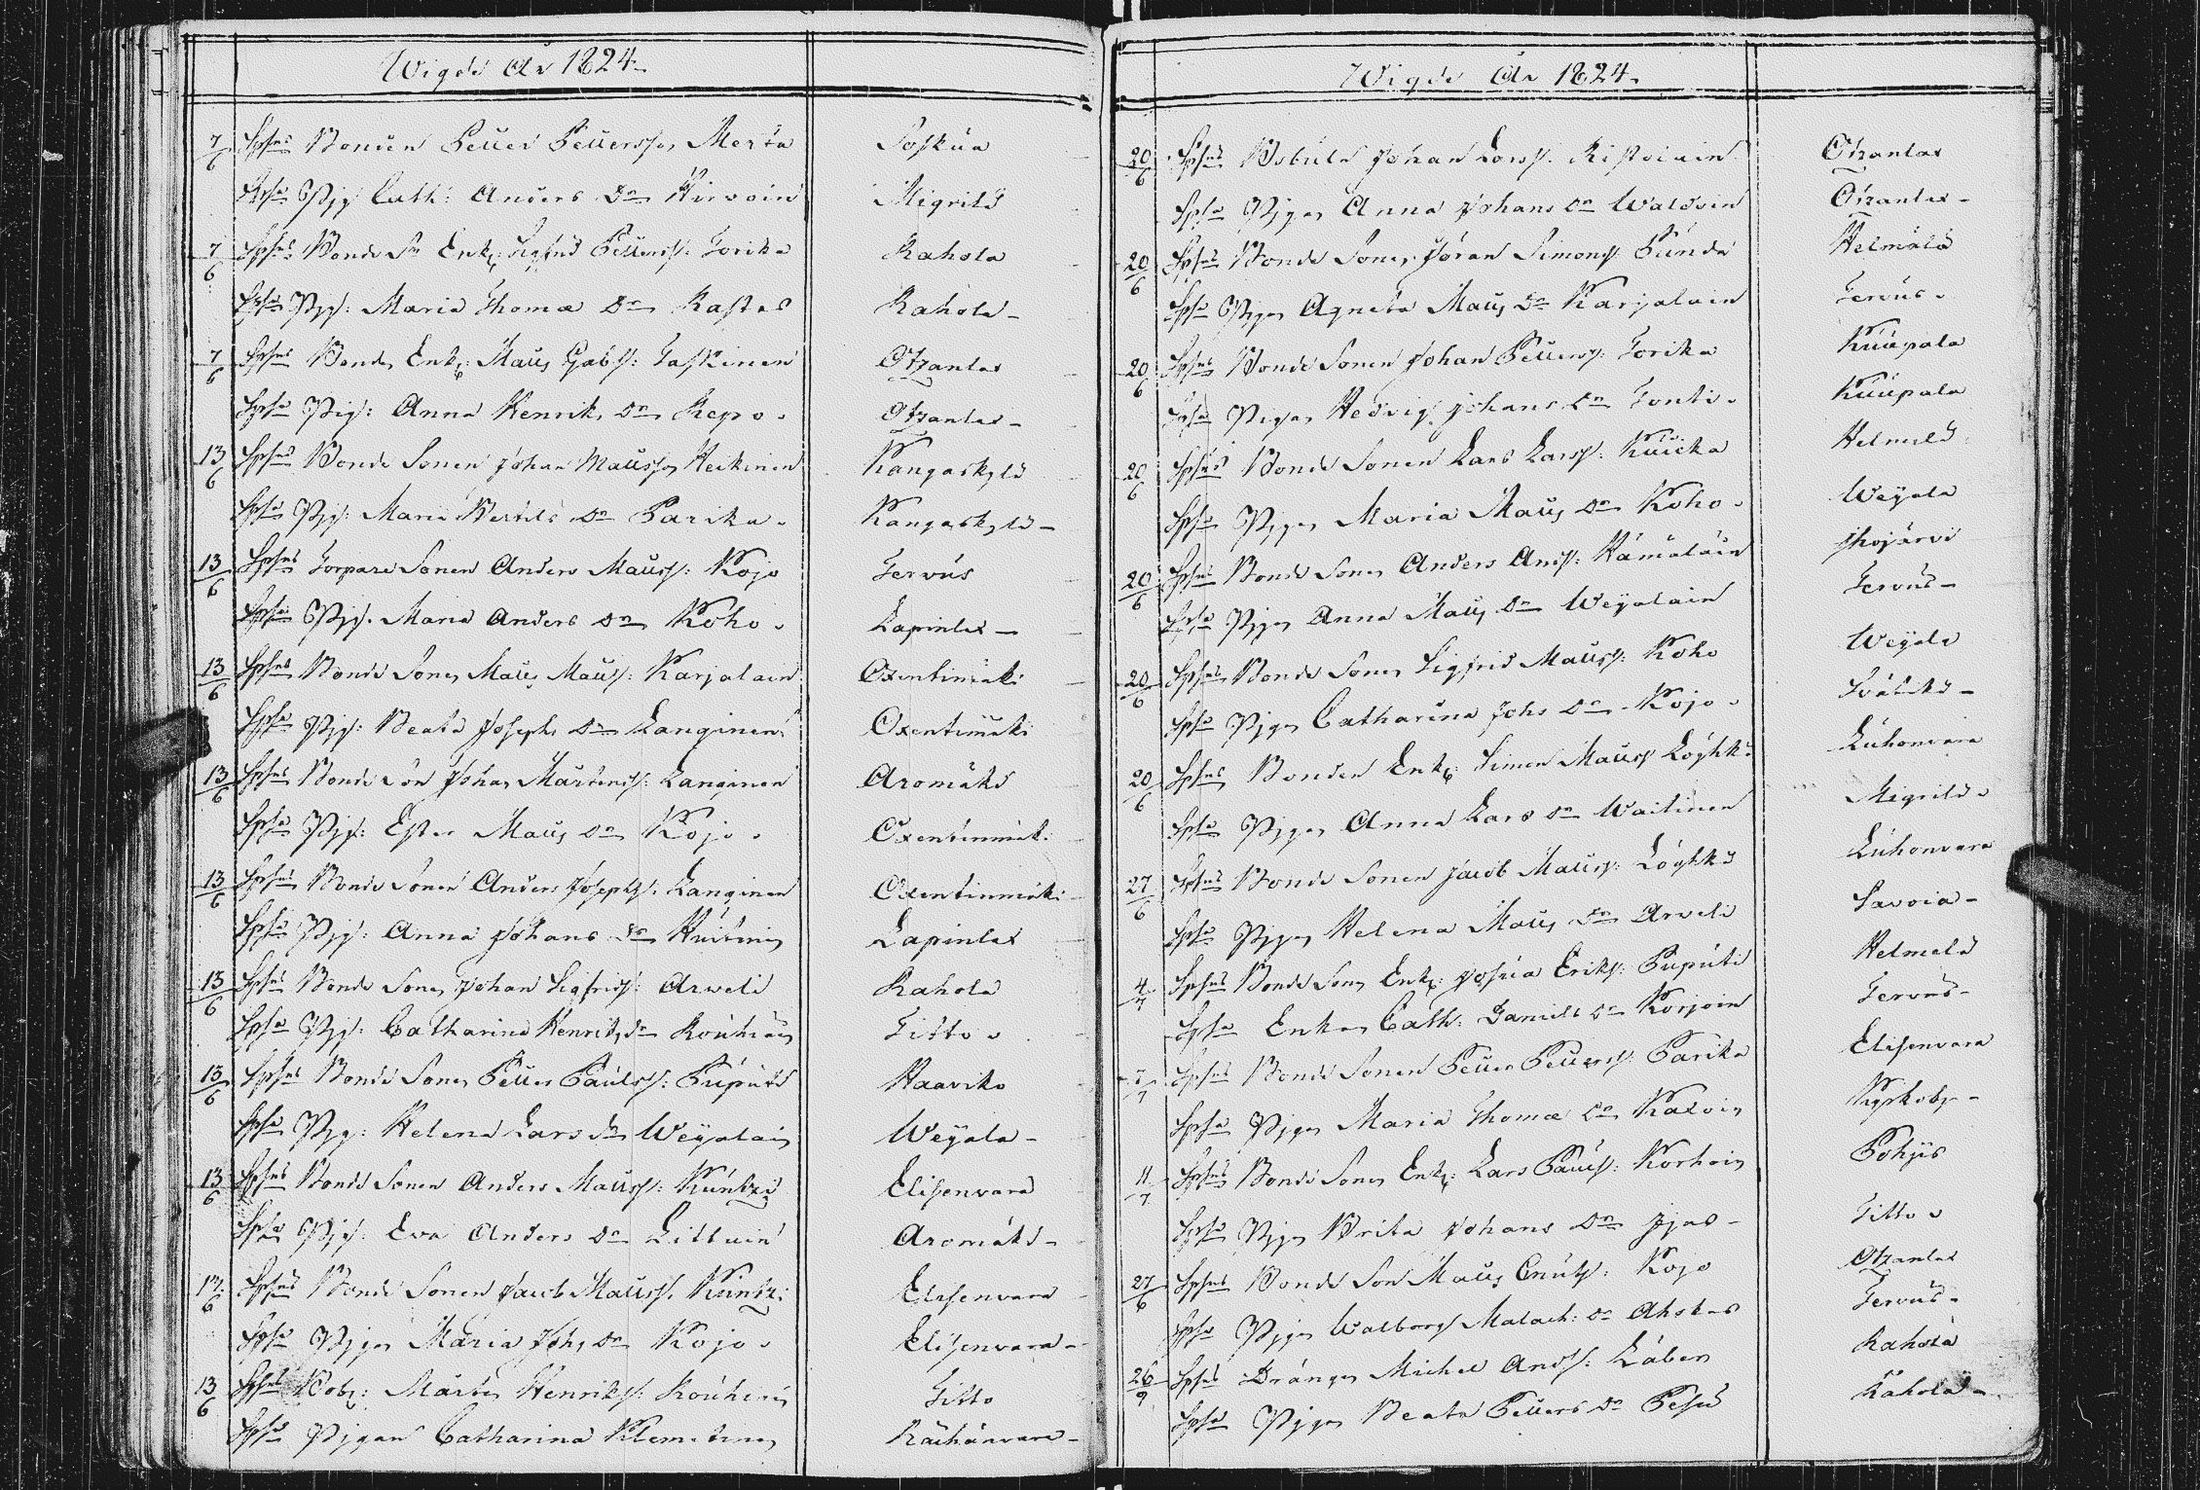 Wigde År 1824.
7/6 Sphns Bonden Petter Pettersson Merta Soskua
Sphn Pig: Cath: Anders Dr Hirvoin Migrilä
7/6 Sphns Bonde Sn Enkl: Sigfrid Petterss: Torika Rahola
Sphn Pig: Maria Thomæ Dr Rastas Rahola
7/6 Sphns Bonde Enkl: Matts Gabs: Taskinen Otzanlax
Sphn Pig: Anna Henriks Dr Repo Otzanlax
13/6 Sphns Bonde Sonen Johan Mattsson Heikinen Kangaskylä
Sphn Pig: Maria Bertils Dr Parika Kangaskylä
13/6 Sphns Torpare Sonen Anders Mattss: Kojo Tervus
Sphn Pig: Maria Anders Dr Koho Lapinlax
13/6 Sphns Bonde Sonen Matts Mattss: Karjalain Oxentimäki
Sphn Pig: Beata Josephs Dr Langinen Oxentimäki
13/6 Sphns Bonde Son Johan Mårtenss: Langinen Aromäki
Sphn Pig: Ester Matts Dr Kojo Oxentimäki
13/6 Sphns Bonde Sonen Anders Josephs: Langinen Oxentinmäki
Sphn Pig: Anna Johans Dr Huitinen Lapinlax
13/6 Sphns Bonde Sonen Johan Sigfrids: Arveli Rahola
Sphn Pig: Catharina Henriks Dr Rouhiain Titto
13/6 Sphns Bonde Sonen Petter Påulss: Puputi Haaviko
Sphn Pig: Helena Lars Dr Weijalain Weijala
13/6 Sphns Bonde Sonen Anders Mattss: Kuntzi Elisenvara
Sphn Pig: Eva Anders Dr Littuin Aromäki
13/6 Sphns Bonde Sonen Jacob Mattss: Kuntzi Elisenvara
Sphn Pigan Maria Johs Dr Kojo Elisenvara
13/6 Sphns Mårten Henrikss: Rouhiain Titto
Sphn Pigan Catharina Klemetinen Räihänvara
Wigde År 1824.
20/6 Sphns Johan Larss: Ristolain Otzanlax
Sphn Pigan Anna Johans Dr Waldvin Otzanlax
20/6 Sphns Bonde Sonen Jöran Simonss: Punda Helmälä
Sphn Pigan Agneta Matts Dr Karjalain Tervus
20/6 Sphns Bonde Sonen Johan Petterss: Torika Kuupala
Sphn Pigan Hedvig Johans Dr Tonti Kuupala
20/6 Sphns Bonde Sonen Lars Larss: Kuicka Helmelä
Sphn Pigan Maria Matts Dr Koho Weijala
20/6 Sphns Bonde Sonen Anders Ands: Hämäläin Ihojärvi
Sphn Pigan Anna Matts Dr Weijalain Tervus
20/6 Sphns Bonde Sonen Sigfrid Mattss: Koho Weijala
Sphn Pigan Catharina Johs Dr Kojo
20/6 Sphns Bonden Enkl: Simon Mattss Löghkö Luhonvara
Sphn Pigan Anna Lars Dr Waitinen Migrilä
27/6 Sphns Bonde Sonen Jacob Mattss: Löghkö Luhonvara
Sphn Pigan Helena Matts Dr Arveli Savoia
4/7 Sphns Bonde Sonen Enkl: Josua Eriks: Puputi Helmelä
Sphn Enkan Cath: Daniels Dr Korjoin Tervus
Sphns Bonde Sonen Petter Petterss: Parika Elisenvara
Sphn Pigan Maria Thomæ Dr Kyrkoby
11/7 Sphns Bonde Sonen Enkl: Lars Pålss: Korhoin Pohjis
Sphn Pigan Brita Johans Dr Titto
27/6 Sphns Bonde Son Matts Cnuts: Kojo Otzanlax
Sphn Pigan Walborg Malach: Dr Ahokas Tervus
26/9 Sphns Drängen Michel Ands: Läben Rahola
Sphn Pigan Beata Petters Dr Pesu Rahola